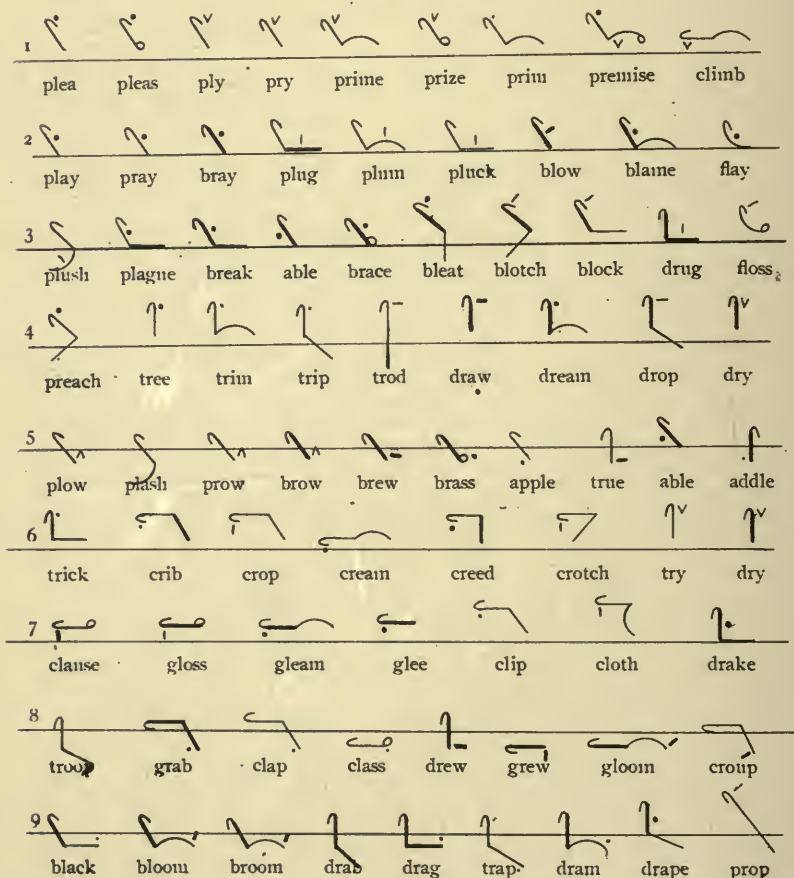 1
plea pleas ply pry prime prize prim premise climb
2
play pray bray plug plum pluck blow blame flay
3
plush plague break able brace bleat blotch block drug floss
4
preach tree trim trip trod draw dream drop dry
5
plow plash prow brow brew brass apple true able addle
6
trick crib crop cream creed crotch try dry
7
clause gloss gleam glee clip cloth drake
8
troop grab clap class drew grew gloom croup
9
black bloom broom drab drag trap dram drape prop